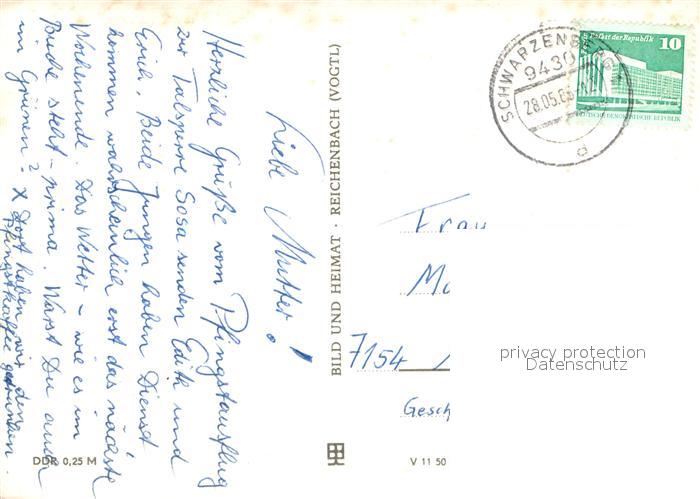 Liebe Mutter!
Herzliche Grüße vom Pfingstausflug
zur Talsperre Sosa senden Edith und
Erich. Beide Jungen haben Dienst
kommen wahrscheinlich erst das nächste
Wochenende. Das Wetter - wie es im
Buche steht - prima. Warst Du auch
im Grünen? X Dort haben wir den
Pfingstkaffee getrunken.
DDR 0,25 M
BILD UND HEIMAT · REICHENBACH (VOGTL)
V 11 50
SCHWARZENBERG
9430
28.05.
d
Palast der Republik 10
DEUTSCHE DEMOKRATISCHE REPUBLIK
Frau
7154
Gesch
privacy protection
Datenschutz